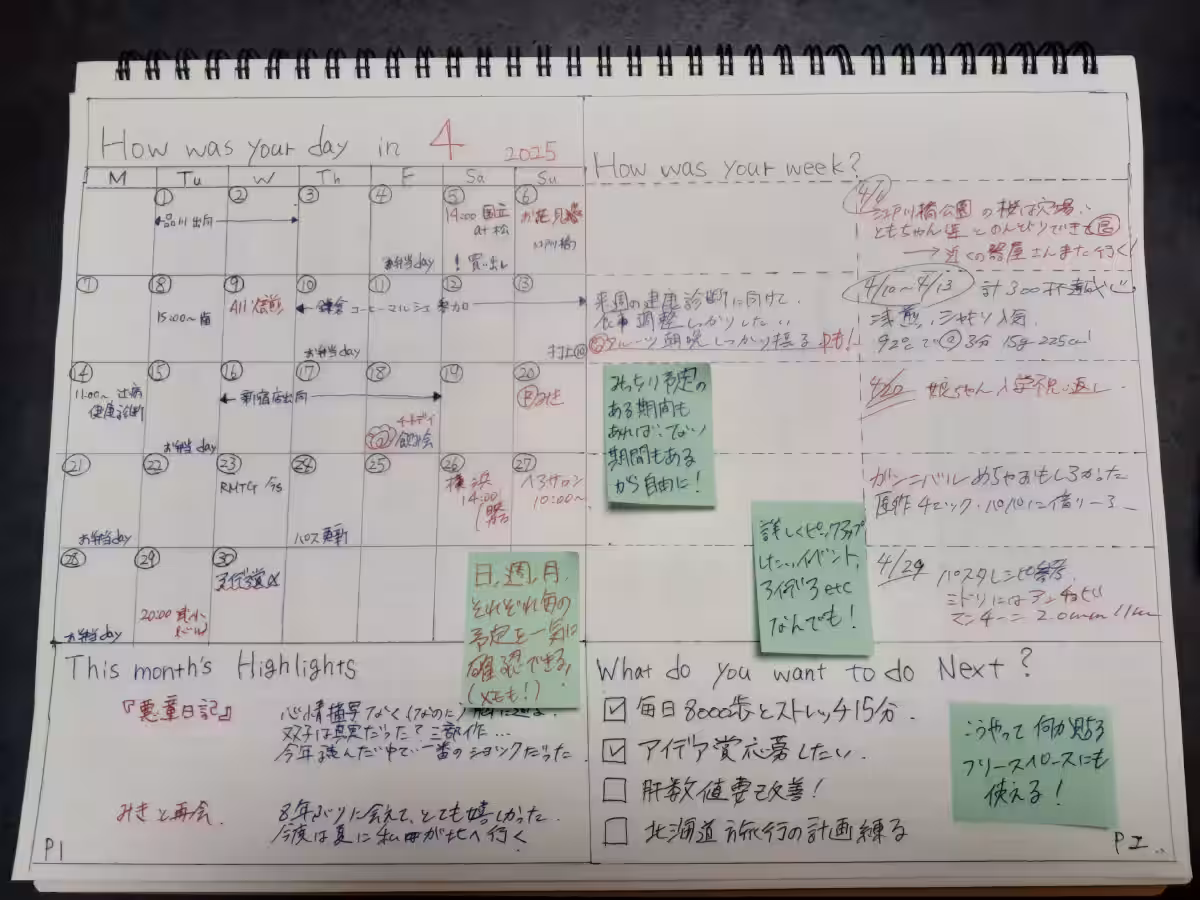 How was your day in 4 2025
M Tu W Th F Sa Su
① ② ③ ④ ⑤ ⑥
品川出向
お弁当day
14:00 国立
at 松
! 買い出し
お花見
江戸川橋
⑦ ⑧ ⑨ ⑩ ⑪ ⑫ ⑬
15:00〜歯
鎌倉コーヒーマルシェ参加
お弁当day
⑭ ⑮ ⑯ ⑰ ⑱ ⑲ ⑳
11:00〜
健康診断
お弁当day
新宿店出向
チートデイ
飲み会
㉑ ㉒ ㉓ ㉔ ㉕ ㉖ ㉗
お弁当day
RMTG
パス更新
横浜
14:00
ヘアサロン
10:00〜
㉘ ㉙ ㉚
お弁当day
20:00
アイデア賞〆
How was your week?
4/6
江戸川橋公園の桜は穴場、
ともちゃん達とのんびりできた
→近くの
さんまた行く!
来週の健康診断に向けて、
食事調整しっかりしたい
フルーツ朝晩しっかり摂る
4/10〜4/13 計300杯達成
浅煎、
人気、
92℃で 3分 15g 225cc!
4/20 娘ちゃん入学祝い返し.
ガンニバルめちゃおもしろかった
原作チェック・パパに借りーる
4/29 パスタレシピ
ミドリにはアンチョビ
マンチーニ 2.0mm
みっちり予定の
ある期間も
あれば、ない
期間もある
から自由に!
詳しくピックアップ
したい、イベント、
etc
なんでも!
日、週、月、
それぞれ毎の
予定を一気に
確認できる,
(メモも!)
This month's Highlights
『悪童日記』
心情描写なく(なのに)
双子は真実だった?三部作…
今年読んだ中で一番のショックだった
みきと再会
8年ぶりに会えて、とても嬉しかった.
今度は夏に私
が北へ行く
P1
What do you want to do Next?
☑ 毎日8000歩とストレッチ15分.
☑ アイデア賞応募したい.
□ 肝数値要改善!
□ 北海道旅行の計画練る
こうやって何か貼る
フリースペースにも
使える!
P2